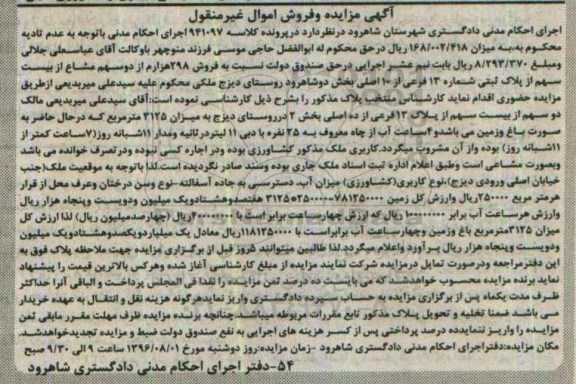 آگهی مزایده وفروش اموال غیرمنقول
اجرای احکام مدنی دادگستری شهرستان شاهرود درنظردارد درپرونده کلاسه ۹۴۱۰۹۷ اجرای احکام مدنی باتوجه به عدم تادیه
محکوم به،به میزان ۱۶۸/۰۰۲/۴۱۸ ریال درحق محکوم له ابوالفضل حاجی موسنی فرزند منوچهر باوکالت آقای عباسعلی جلالی
ومبلغ ۸/۲۹۳/۳۷۰ ریال بابت نیم عشر اجرایی درحق صندوق دولت نسبت به فروش ۲۹۸هزارم از دوسهم مشاع از بیست
سهم از پلاک ثبتی شماره ۱۳ فرعی از ۱۰ اصلی بخش دوشاهرود روستای دیزج ملکی محکوم علیه سیدعلی میریعزیزی ازطریق
مزایده حضوری اقدام نماید کارشناس منتخب پلاک مذکور را بشرح ذیل کارشناسی نموده است:آقای سیدعلی میریعزیزی مالک
دو سهم از بیست سهم از پلاک ۱۳فرعی از ده اصلی بخش ۲ درروستای دیزج به میزان ۳۱۲۵ مترمربع که درحال حاضر به
صورت باغ وزمین می باشدو ۴ساعت آب از چاه معروف به ۲۵ نفره با دبی ۱۱ لیتردرثانیه ومدار ۱۱شبانه روز(۷ساعت کمتر از
۱۱شبانه روز) بوده واز آن مشروب میگردد.کاربری ملک مذکور کشاورزی بوده ودر اجاره کسی نبوده ودرتصرف خوانده می باشد
وبصورت مشاعی است وطبق اعلام اداره ثبت اسناد ملک جاری بوده وسند صادر نگردیده است.لذا باتوجه به موقعیت ملک(جنب
خیابان اصلی ورودی دیزج)،نوع کاربری(کشاورزی) میزان آب، دسترسی به جاده آسفالته -نوع وسن درختان وعرف محل از قرار
هرمتر مربع ۲۵۰۰۰۰ریال وارزش کل زمین ۷۸۱۲۵۰۰۰۰=۲۵۰۰۰۰*۳۱۲۵ هفتصدوهشتادویک میلیون ودویست وپنجاه هزار ریال
وارزش هرساعت آب برابر ۱۰۰۰۰۰۰۰۰ ریال که ارزش چهارساعت برابر است با ۴۰۰۰۰۰۰۰۰ریال (چهارصدمیلیون ریال) لذا ارزش کل
میزان ۳۱۲۵مترمربع باغ وزمین وچهارساعت آب برابراست با ۱۱۸۱۲۵۰۰۰۰ریال معادل یک میلیاردویکصدوهشتادویک میلیون
ودویست وپنجاه هزار ریال برآورد واعلام میگردد.لذا طالبین میتوانند ۵روز قبل از برگزاری مزایده جهت ملاحظه پلاک فوق به
این دفترمراجعه ودرصورت تمایل درمزایده شرکت نمایند مزایده از مبلغ کارشناسی آغاز شده وهرکس بالاترین قیمت را پیشنهاد
نماید برنده مزایده محسوب خواهدشد که می بایست ده درصد ثمن مزایده را نقدا فی المجلس پرداخت و الباقی آنرا حداکثر
ظرف مدت یکماه پس از برگزاری مزایده به حساب سپرده دادگستری واریز نمایدهرگونه هزینه نقل و انتقال به عهده خریدار
می باشد ضمنا تخلیه و تحویل پلاک مذکور تابع مقررات مربوطه میباشد.چنانچه برنده مزایده ظرف مهلت مقرر مابقی ثمن
مزایده را واریز ننمایدده درصد پرداختی پس از کسر هزینه های اجرایی به نفع صندوق دولت ضبط و مزایده تجدیدخواهدشد.
مکان مزایده:دفتراجرای احکام مدنی دادگستری شاهرود -زمان مزایده:روز دوشنبه مورخ ۱۳۹۶/۰۸/۰۱ ساعت ۹ الی ۹/۳۰ صبح
۵۴-دفتر اجرای احکام مدنی دادگستری شاهرود